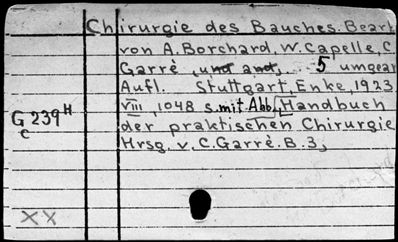 Chirurgie des Bauches. Bearb
von A. Borchard, W. Capelle, C.
Garrè, und and,. 5 umgear
Aufl. Stuttgart, Enke, 1923
VIII, 1048 S. mit Abb. [Handbuch
G 239 H
c
der praktischen Chirurgie
Hrsg. v. C. Garrè. B. 3,
XX